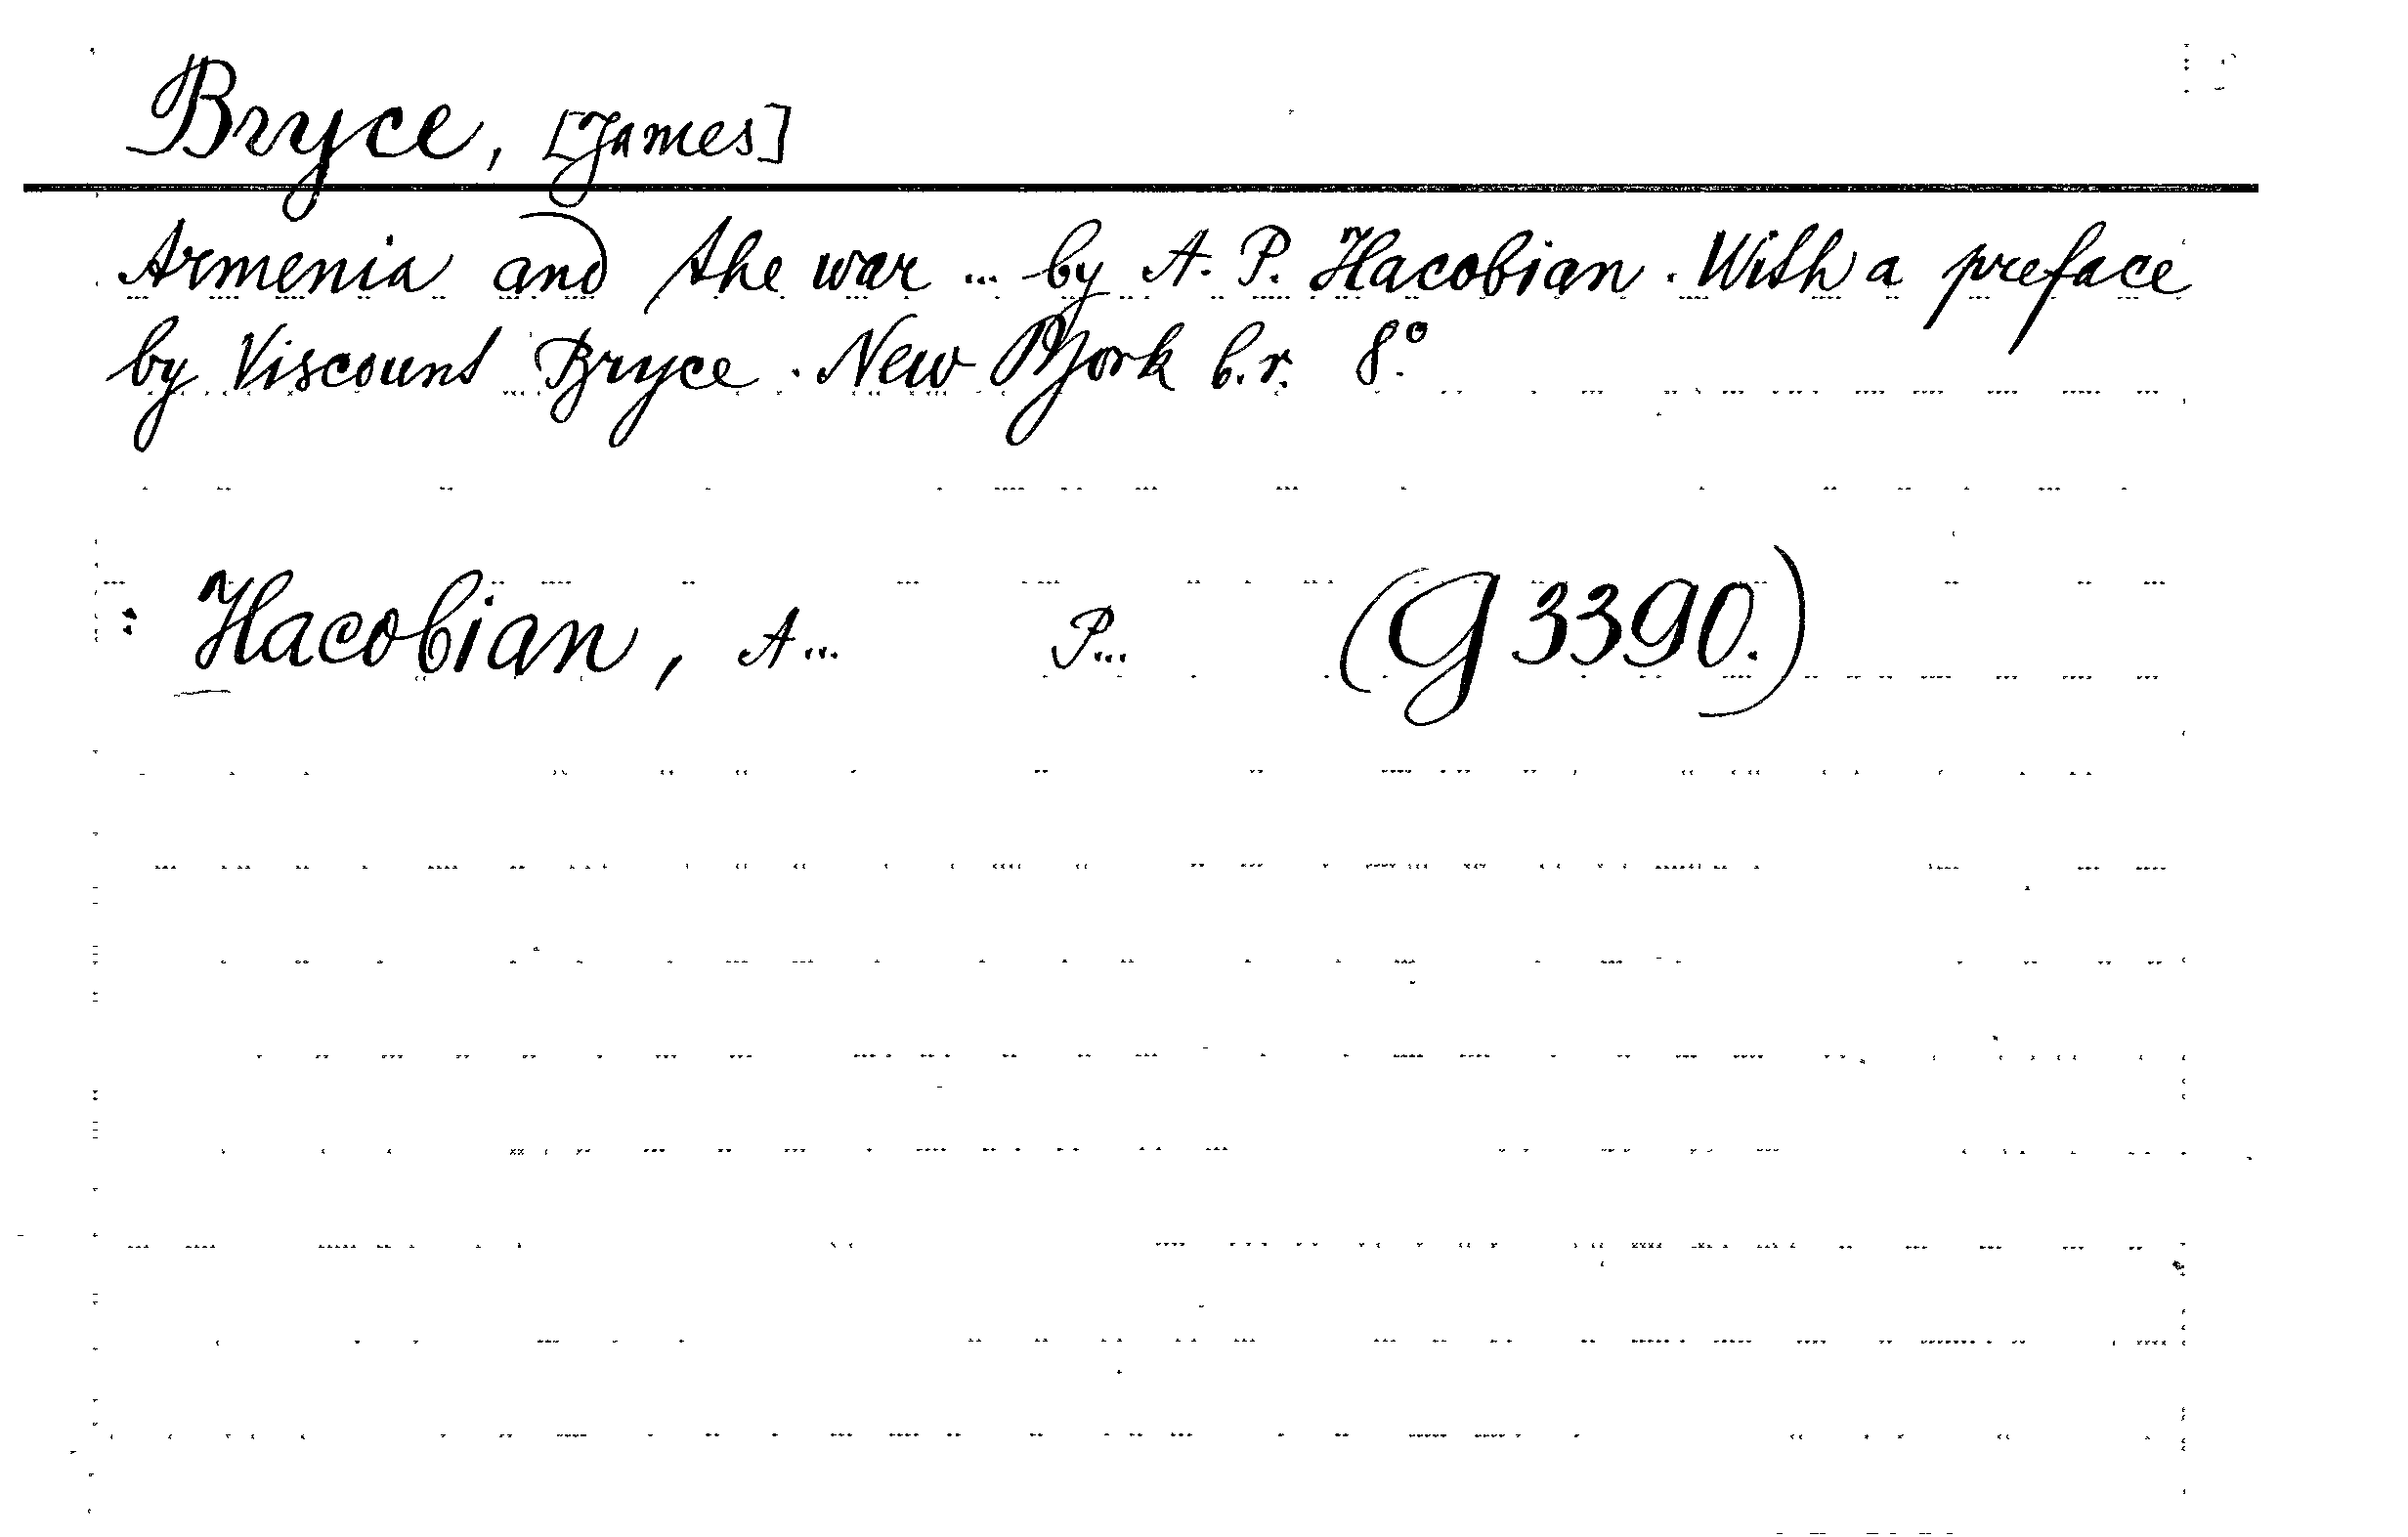 Bryce, [James]
Armenia and the war ... by A. P. Hacobian. With a preface
by Viscount Bryce. New York b.r. 8°.
: Hacobian, A... P... (G 3390.)